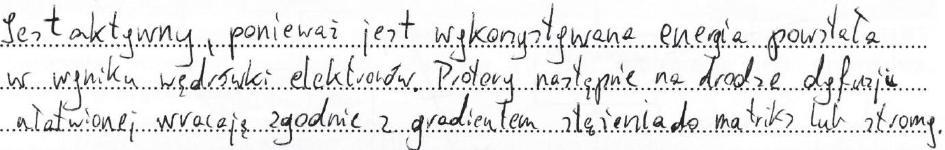 Jest aktywny, ponieważ jest wykorzystywana energia powstała
w wyniku wędrówki elektronów. Protony następnie na drodze dyfuzji
ułatwionej wracają zgodnie z gradientem stężenia do matriks lub stromy.